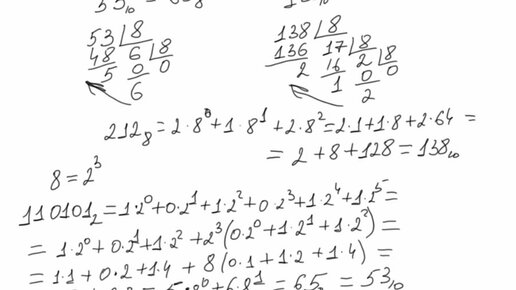 53 | 8
48 6 | 8
5 0 0
6
138 | 8
136 17 | 8
2 16 2 | 8
1 0 0
2
212₈ = 2·8⁰ + 1·8¹ + 2·8² = 2·1 + 1·8 + 2·64 =
= 2 + 8 + 128 = 138₁₀
8 = 2³
110101₂ = 1·2⁰ + 0·2¹ + 1·2² + 0·2³ + 1·2⁴ + 1·2⁵ =
= 1·2⁰ + 0·2¹ + 1·2² + 2³(0·2⁰ + 1·2¹ + 1·2²) =
= 1·1 + 0·2 + 1·4 + 8(0·1 + 1·2 + 1·4) =
= 5·8⁰ + 6·8¹ = 65₈ = 53₁₀